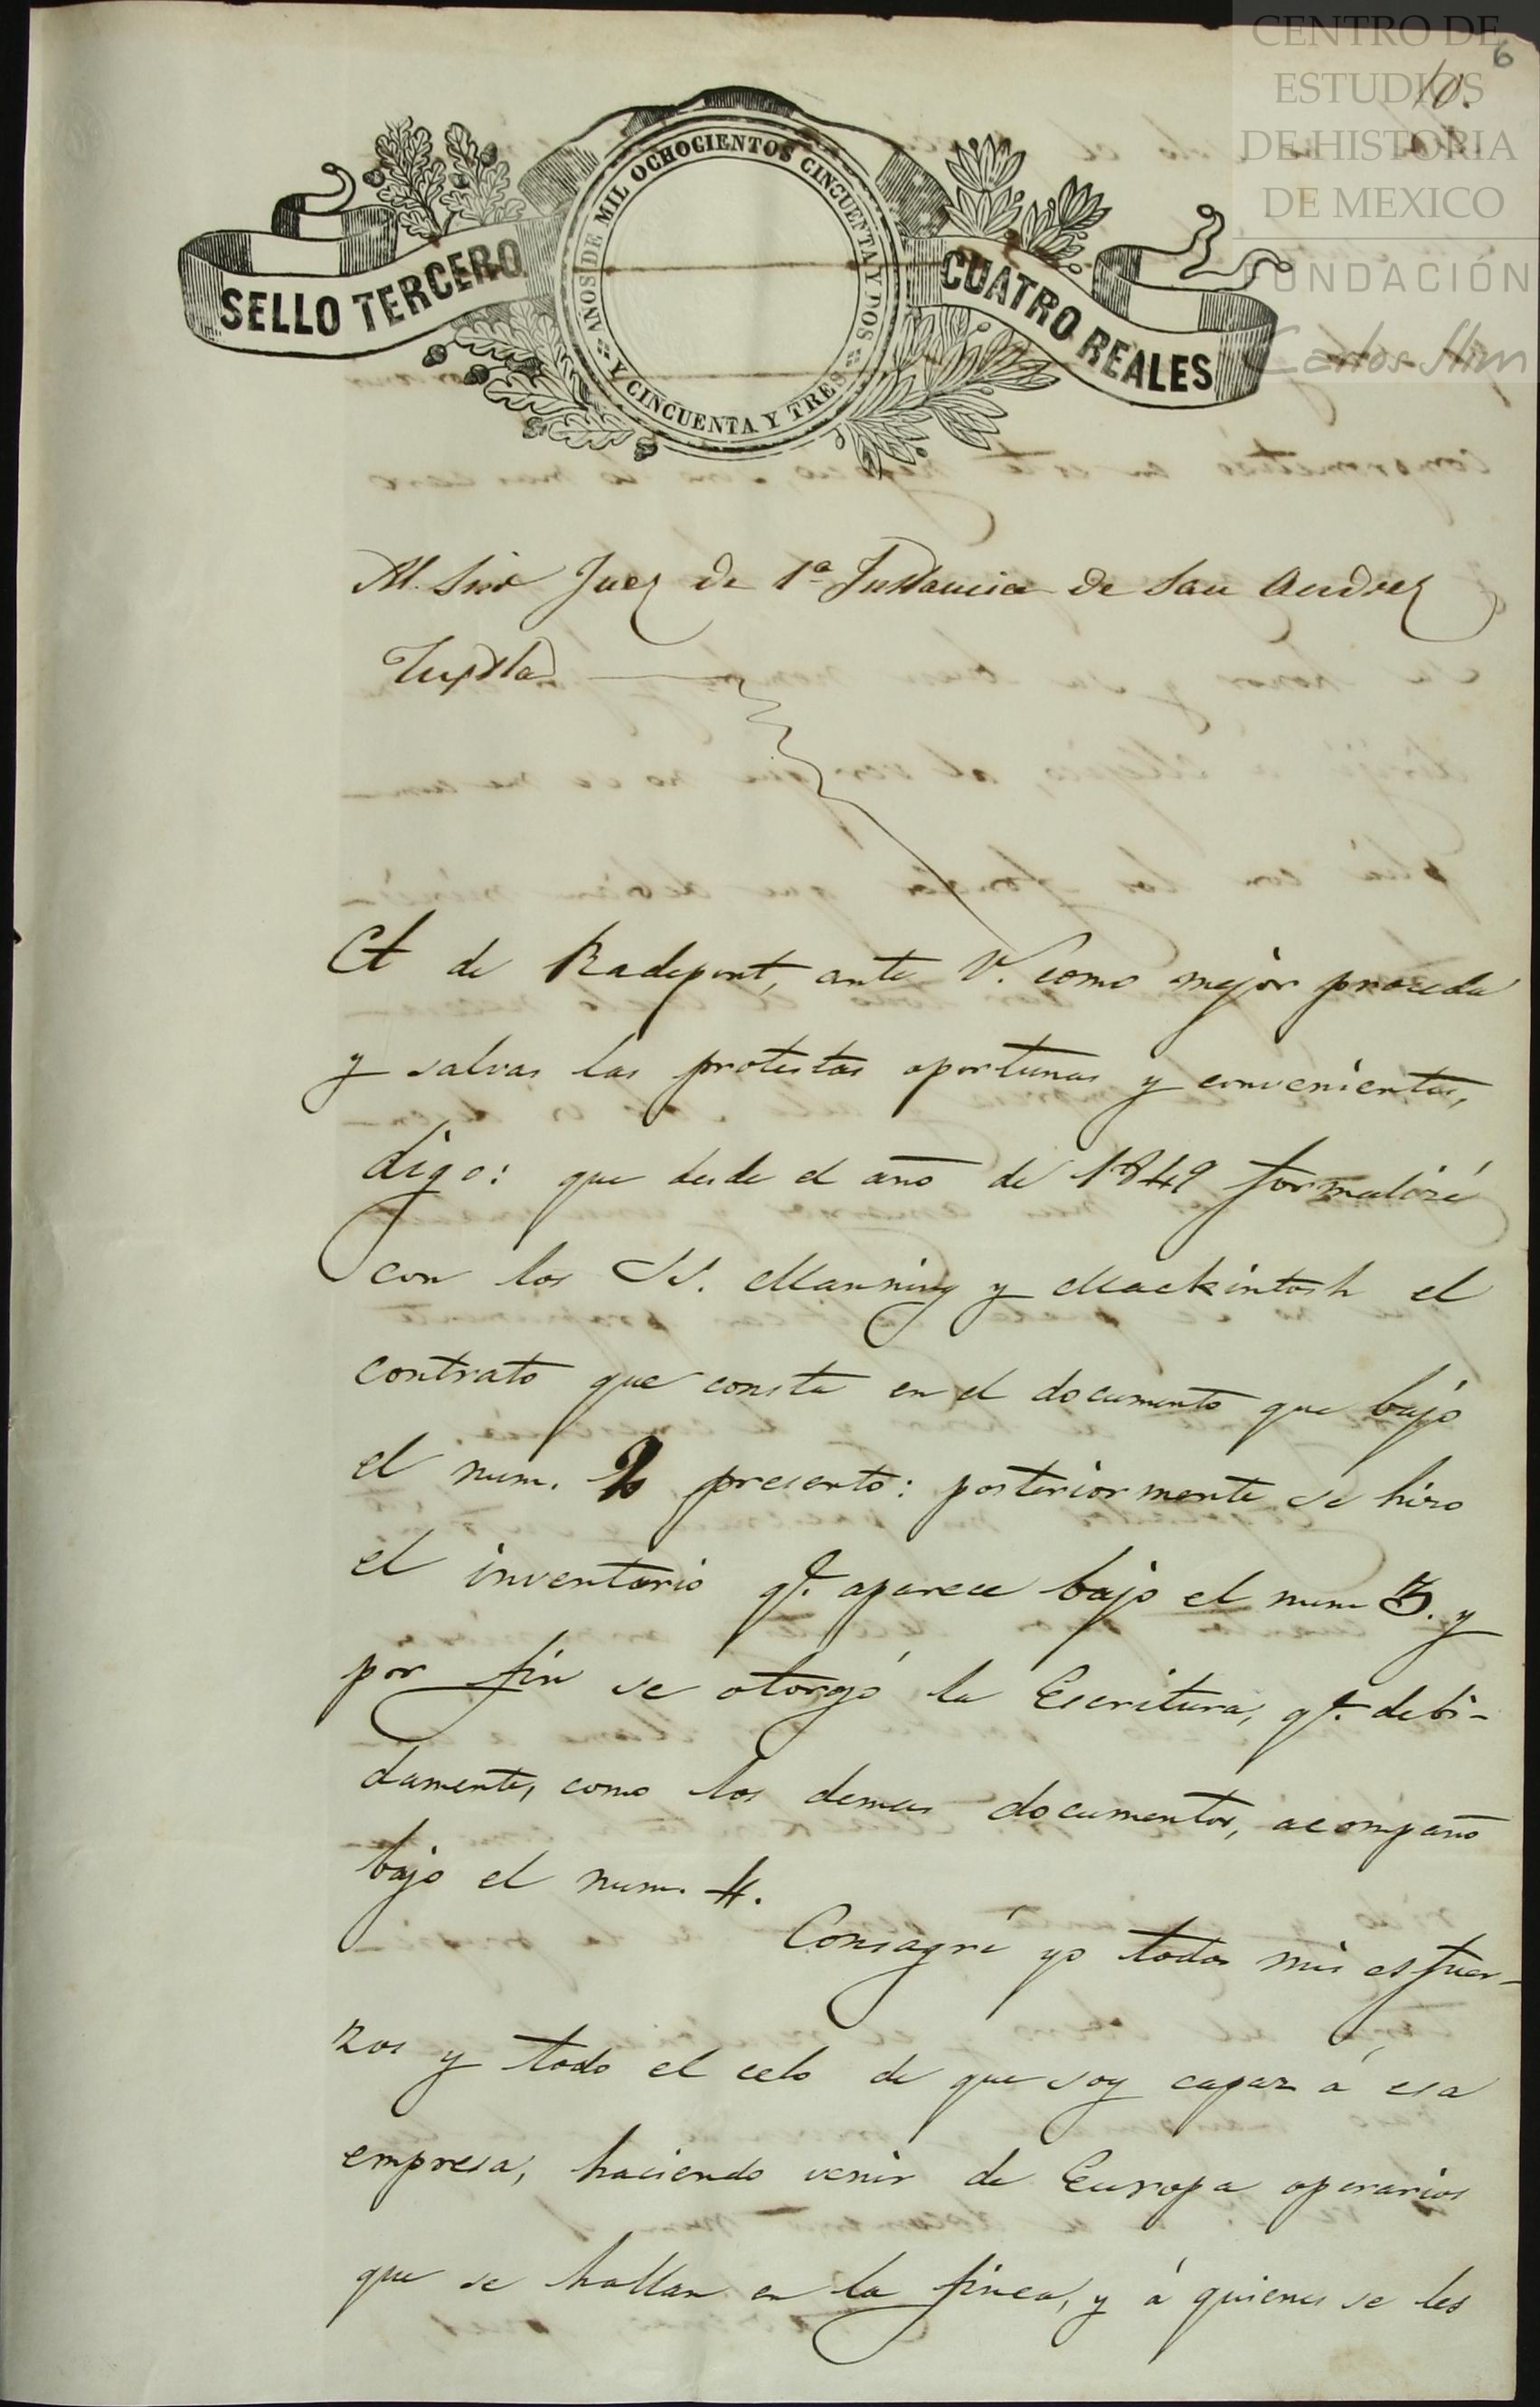 CENTRO DE
ESTUDIOS
DE HISTORIA
DE MEXICO
FUNDACIÓN
Carlos Slim
6
10.
SELLO TERCERO
AÑOS DE MIL OCHOCIENTOS CINCUENTA Y DOS
Y CINCUENTA Y TRES
CUATRO REALES
Al Sñor Juez de 1ª Instancia de San Andrez
Tuxtla
A de Radepont, ante V. como mejor proceda
y salvas las protestas oportunas y convenientes,
digo: que desde el año de 1849 formalizé
con los SS. Manning y Mackintosh el
contrato que consta en el documento que bajo
el num. 2 presento: posteriormente se hizo
el inventario qe. aparece bajo el num 3. y
por fin se otorgó la Escritura, qe. debi-
damente, como los demas documentos, acompaño
bajo el num. 4.
Consagré yo todos mis esfuer-
zos y todo el celo de que soy capaz á esa
empresa, haciendo venir de Europa operarios
que se hallan en la finca, y á quienes se les